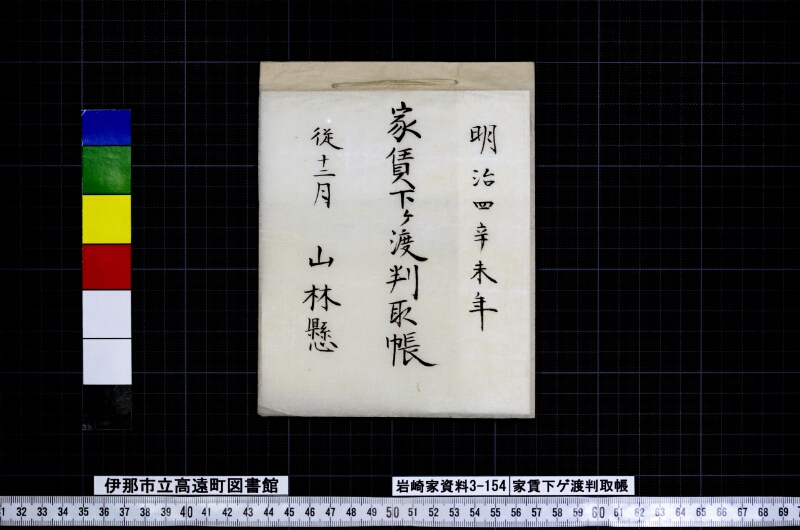 明治四辛未年
家賃下ケ渡判取帳
従十二月 山林懸
伊那市立高遠町図書館
岩崎家資料3-154
家賃下ゲ渡判取帳
1 32 33 34 35 36 37 38 39 40 41 42 43 44 45 46 47 48 49 50 51 52 53 54 55 56 57 58 59 60 61 62 63 64 65 66 67 68 69